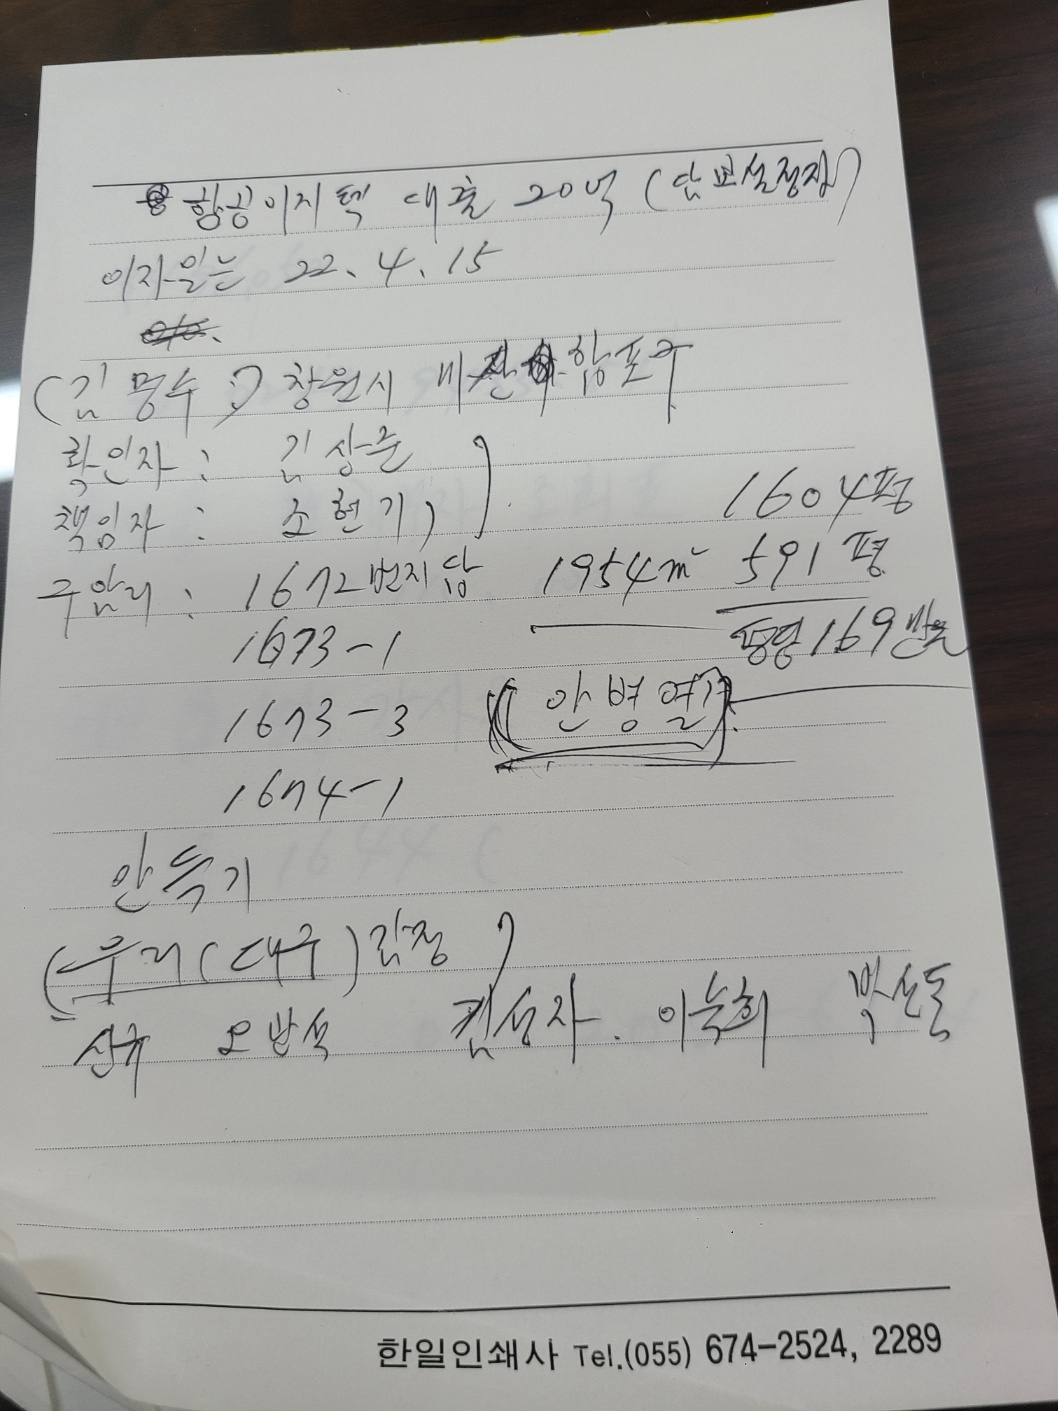 항공이지텍 대출 20억 (담보설정자)
이자일은 22.4.15
(김명수:) 창원시 마산 합포구
확인자: 김상준
책임자: 조현기,
1604평
구암리: 1672번지 답 1954㎡ 591평
1673-1 평당 169만원
1673-3 (안병열)
1674-1
안득기
(우리(대구) 감정)
오방석 이숙희
한일인쇄사 Tel.(055) 674-2524, 2289